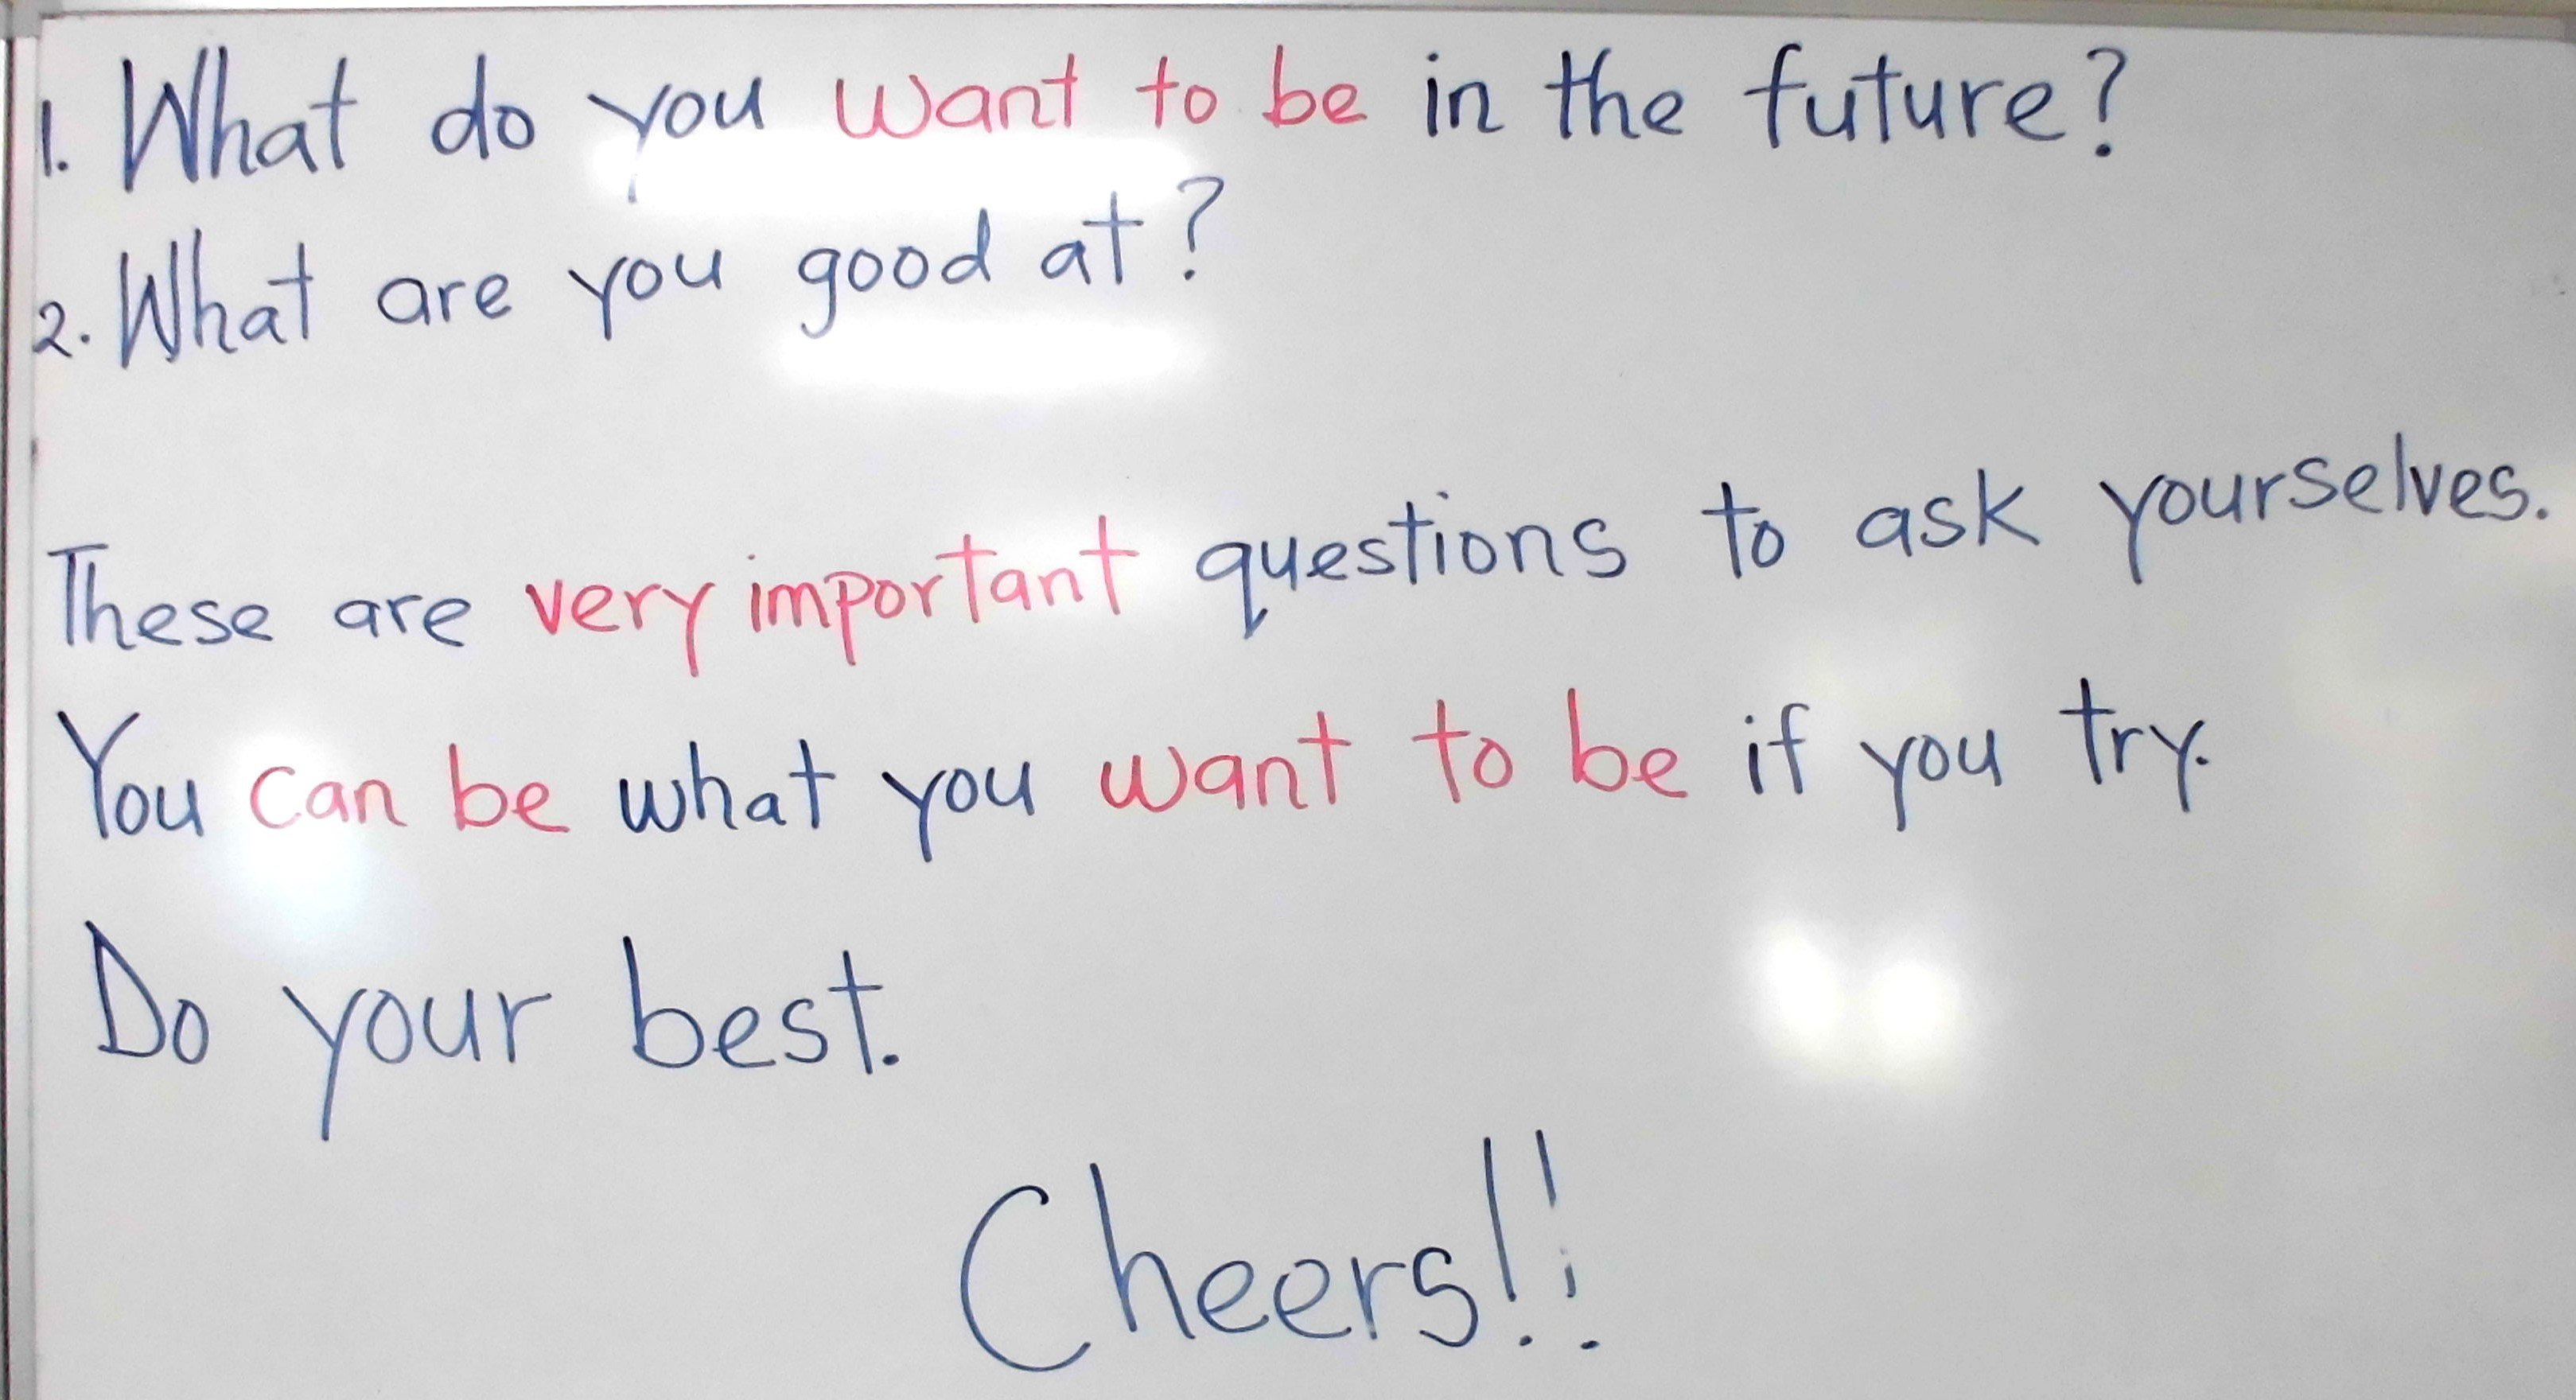 1. What do you want to be in the future?
2. What are you good at?
These are very important questions to ask yourselves.
You can be what you want to be if you try.
Do your best.
Cheers!!